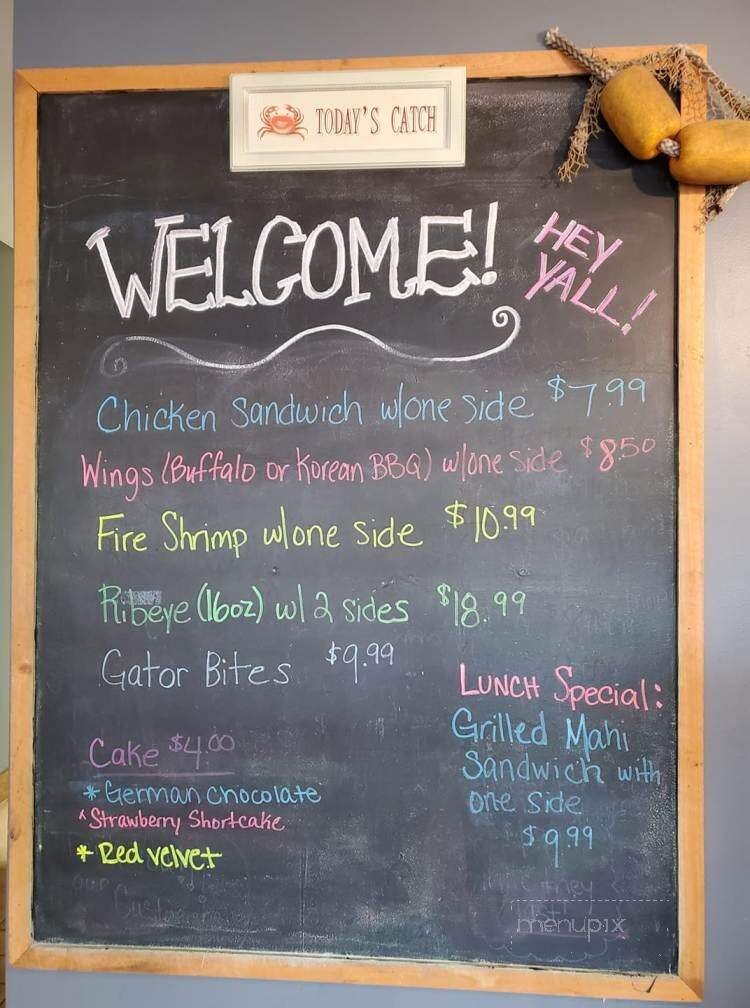 TODAY'S CATCH
WELCOME!
HEY
YALL!
Chicken Sandwich w/one side $7.99
Wings (Buffalo or Korean BBQ) w/one side $8.50
Fire Shrimp w/one side $10.99
Ribeye (16oz) w/ 2 sides $18.99
Gator Bites $9.99
Cake $4.00
* German chocolate
* Strawberry Shortcake
* Red velvet
LUNCH Special:
Grilled Mahi
Sandwich with
one side
$9.99
menupix